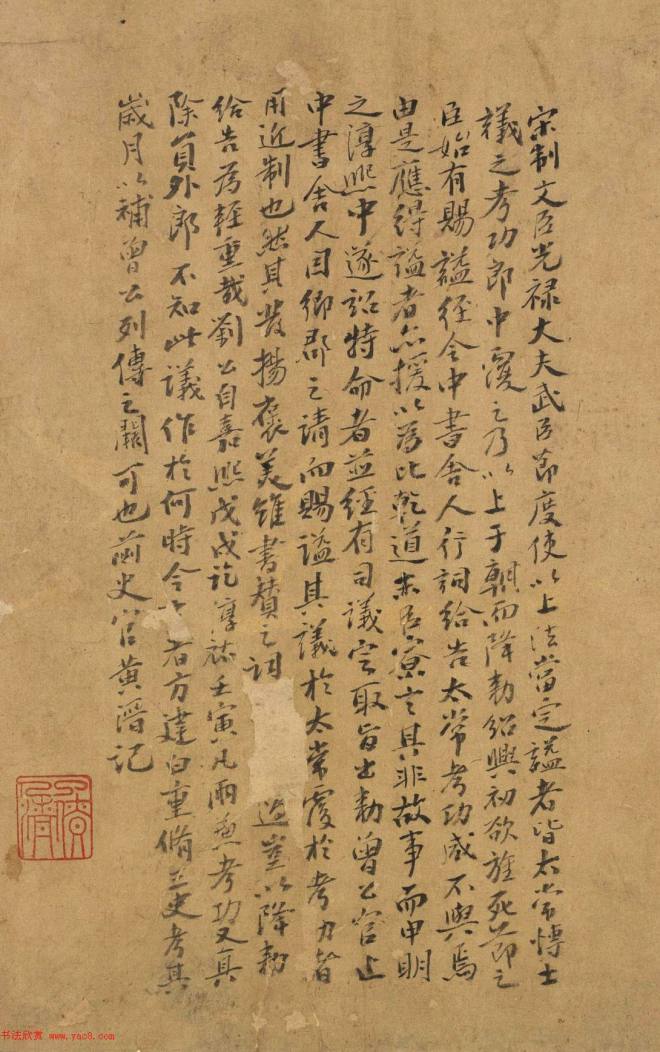 宋制文臣光禄大夫武臣節度使以上法當定謚者皆太常博士
議之考功郎中覆之乃以上于朝而降勅紹興初欲旌死節之
臣始有賜謚徑令中書舍人行詞給告太常考功咸不與焉
由是應得謚者亦援以為比乾道末臣寮言其非故事而申明
之淳熙中遂詔特命者並經有司議定取旨出勅曾公官止
中書舍人因鄉郡之請而賜謚其議於太常覆於考功者
用近制也然其發揚褒美雖書贊之詞 豈以降勅
給告為輕重哉劉公自嘉熙戊戌訖淳祐壬寅凡兩為考功又真
除員外郎不知此議作於何時今 者方建白重脩三史考其
歲月以補曾公列傳之闕可也前史官黄溍記
書法欣赏 www.yac8.com